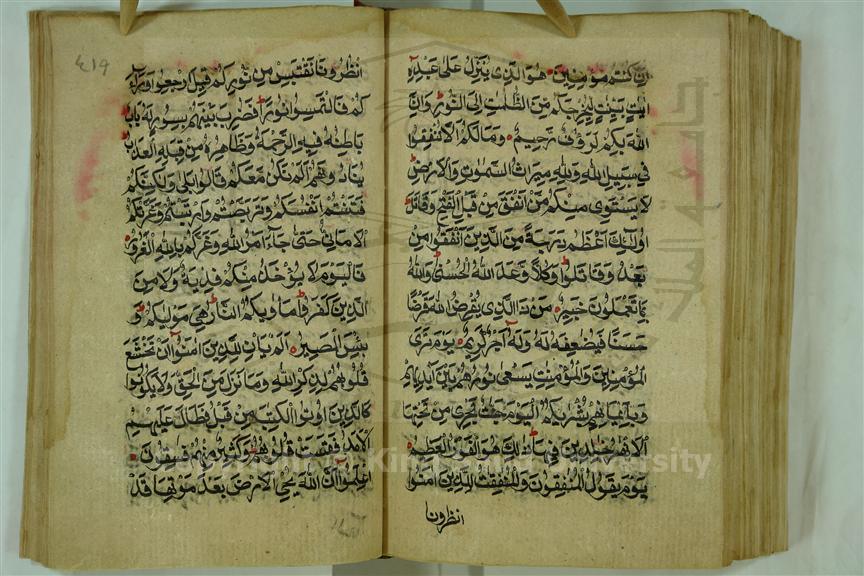 ان كنتم مؤمنين هو الذى ينزل على عبده
ايت بينت ليخرجكم من الظلمت الى النور وان
الله بكم لرؤف رحيم ومالكم الا تنفقوا
فى سبيل الله ولله ميراث السموت والارض
لا يستوى منكم من انفق من قبل الفتح وقاتل
اولئك اعظم درجة من الذين انفقوا من
بعد وقاتلوا وكلا وعد الله الحسنى والله
بما تعملون خبير من ذا الذى يقرض الله قرضا
حسنا فيضعفه له وله اجر كريم يوم ترى
المؤمنين والمؤمنت يسعى نورهم بين ايديهم
وبايمانهم بشريكم اليوم جنت تجرى من تحتها
الانهر خلدين فيها ذلك هو الفوز العظيم
يوم يقول المنفقون والمنفقت للذين امنوا
انظرونا
٤١٩
انظرونا نقتبس من نوركم قيل ارجعوا وراء
كم فالتمسوا نورا فضرب بينهم بسور له باب
باطنه فيه الرحمة وظاهره من قبله العذاب
ينادونهم الم نكن معكم قالوا بلى ولكنكم
فتنتم انفسكم وتربصتم وارتبتم وغرتكم
الامانى حتى جاء امر الله وغركم بالله الغرور
فاليوم لا يؤخذ منكم فدية ولا من
الذين كفروا ماويكم النار هى موليكم و
بئس المصير الم يان للذين امنوا ان تخشع
قلوبهم لذكر الله وما نزل من الحق ولا يكونوا
كالذين اوتوا الكتب من قبل فطال عليهم
الامد فقست قلوبهم وكثير منهم فسقون
اعلموا ان الله يحى الارض بعد موتها قد
King Saud University